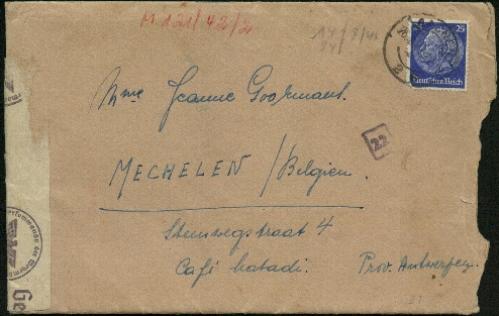 M 121/42/2
25
Deutsches Reich
Mme Jeanne Goormant.
22
MECHELEN / Belgien.
Steenwegstraat 4
Café Matadi.
Prov. Antwerpen.
Ge